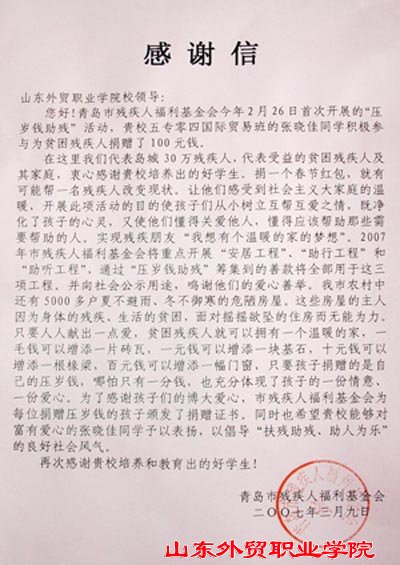 感谢信
山东外贸职业学院校领导：
您好！青岛市残疾人福利基金会今年2月26日首次开展的“压
岁钱助残”活动，贵校五专零四国际贸易班的张晓佳同学积极参
与为贫困残疾人捐赠了100元钱。
在这里我们代表岛城30万残疾人，代表受益的贫困残疾人及
其家庭，衷心感谢贵校培养出的好学生。捐一个春节红包，就有
可能帮一名残疾人改变现状。让他们感受到社会主义大家庭的温
暖，开展此项活动的目的使孩子们从小树立互帮互爱之情，既净
化了孩子的心灵，又使他们懂得关爱他人，懂得应该帮助那些需
要帮助的人。实现残疾朋友“我想有个温暖的家的梦想”。2007
年市残疾人福利基金会将重点开展“安居工程”、“助行工程”和
“助听工程”，通过“压岁钱助残”筹集到的善款将全部用于这三
项工程。并向社会公示用途，鸣谢他们的爱心善举。我市农村中
还有5000多户夏不避雨、冬不御寒的危陋房屋。这些房屋的主人
因为身体的残疾、生活的贫困，面对摇摇欲坠的住房而无能为力。
只要人人献出一点爱，贫困残疾人就可以拥有一个温暖的家，一
毛钱可以增添一片砖瓦，一元钱可以增添一块基石，十元钱可以
增添一根椽梁，百元钱可以增添一幅门窗，只要孩子捐赠的是自
己的压岁钱，哪怕只有一分钱，也充分体现了孩子的一份情意、
一份爱心。为了感谢孩子们的博大爱心，市残疾人福利基金会为
每位捐赠压岁钱的孩子颁发了捐赠证书。同时也希望贵校能够对
富有爱心的张晓佳同学予以表扬，以倡导“扶残助残、助人为乐”
的良好社会风气。
再次感谢贵校培养和教育出的好学生！
青岛市残疾人福利基金会
二〇〇七年三月九日
山东外贸职业学院